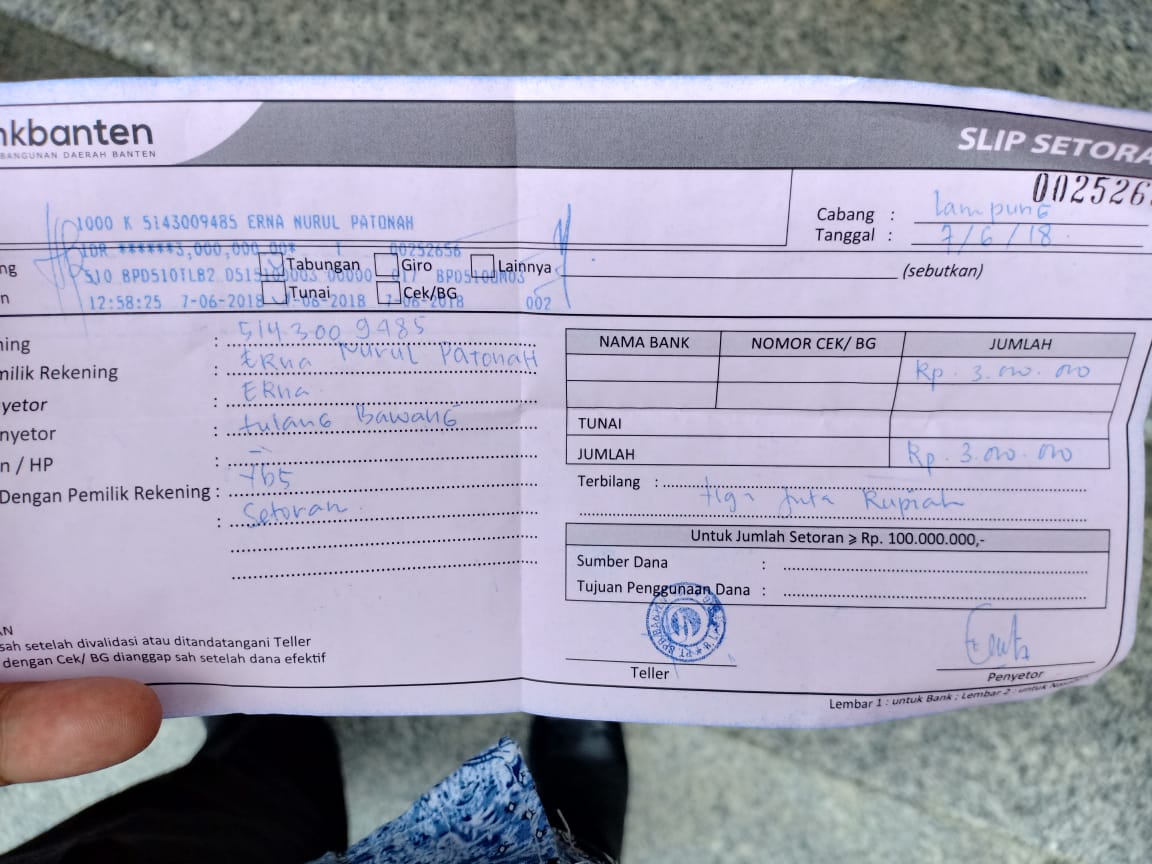 nkbanten
BANGUNAN DAERAH BANTEN
SLIP SETORA
0025265
1000 K 5143009485 ERNA NURUL PATONAH
Cabang : Lampung
IDR ******3,000,000.00* 1 00252656
Tanggal : 7/6/18
ng Tabungan Giro Lainnya (sebutkan)
510 BPD510TLB2 D515 00000 017
n Tunai Cek/BG
12:58:25 7-06-2018 7-06-2018 7-06-2018 002
ning : 5143009485
milik Rekening : ERna Nurul PatonaH
yetor : ERna
nyetor : tulang Bawang
n / HP : -
Dengan Pemilik Rekening : Ybs
: Setoran
NAMA BANK NOMOR CEK/ BG JUMLAH
Rp. 3.000.000
TUNAI
JUMLAH Rp. 3.000.000
Terbilang : tiga juta Rupiah
Untuk Jumlah Setoran ⩾ Rp. 100.000.000,-
Sumber Dana :
Tujuan Penggunaan Dana :
AN
sah setelah divalidasi atau ditandatangani Teller
dengan Cek/ BG dianggap sah setelah dana efektif
Teller
Penyetor
Lembar 1 : untuk Bank ; Lembar 2 : untuk